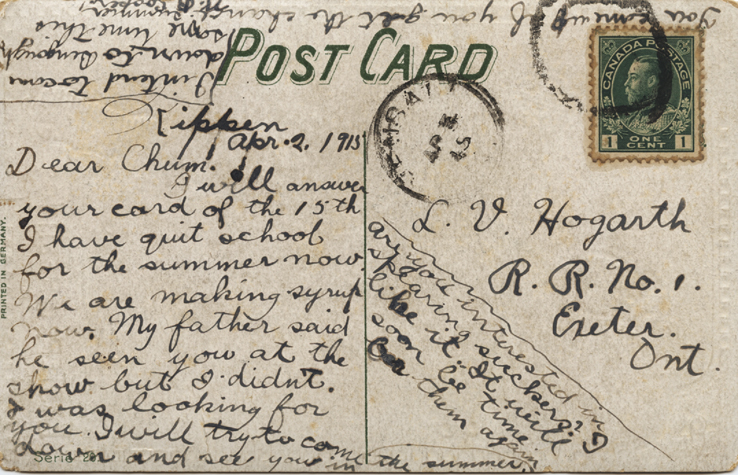 POST CARD
CANADA POSTAGE
1 ONE CENT 1
Kippen
Apr. 2, 1915
Dear Chum.
I will answer
your card of the 15th
I have quit school
for the summer now.
We are making syrup
now. My father said
he seen you at the
show but I didn't.
I was looking for
you. I will try to come
down and see you in the summer.
L. V. Hogarth
R. R. No. 1.
Exeter.
Ont.
are you interested in
spearing suckers? I
like it. It will
soon be time
for them again.
You come up if you get the chance
I intend to come
down to
some time this
PRINTED IN GERMANY.
Serie